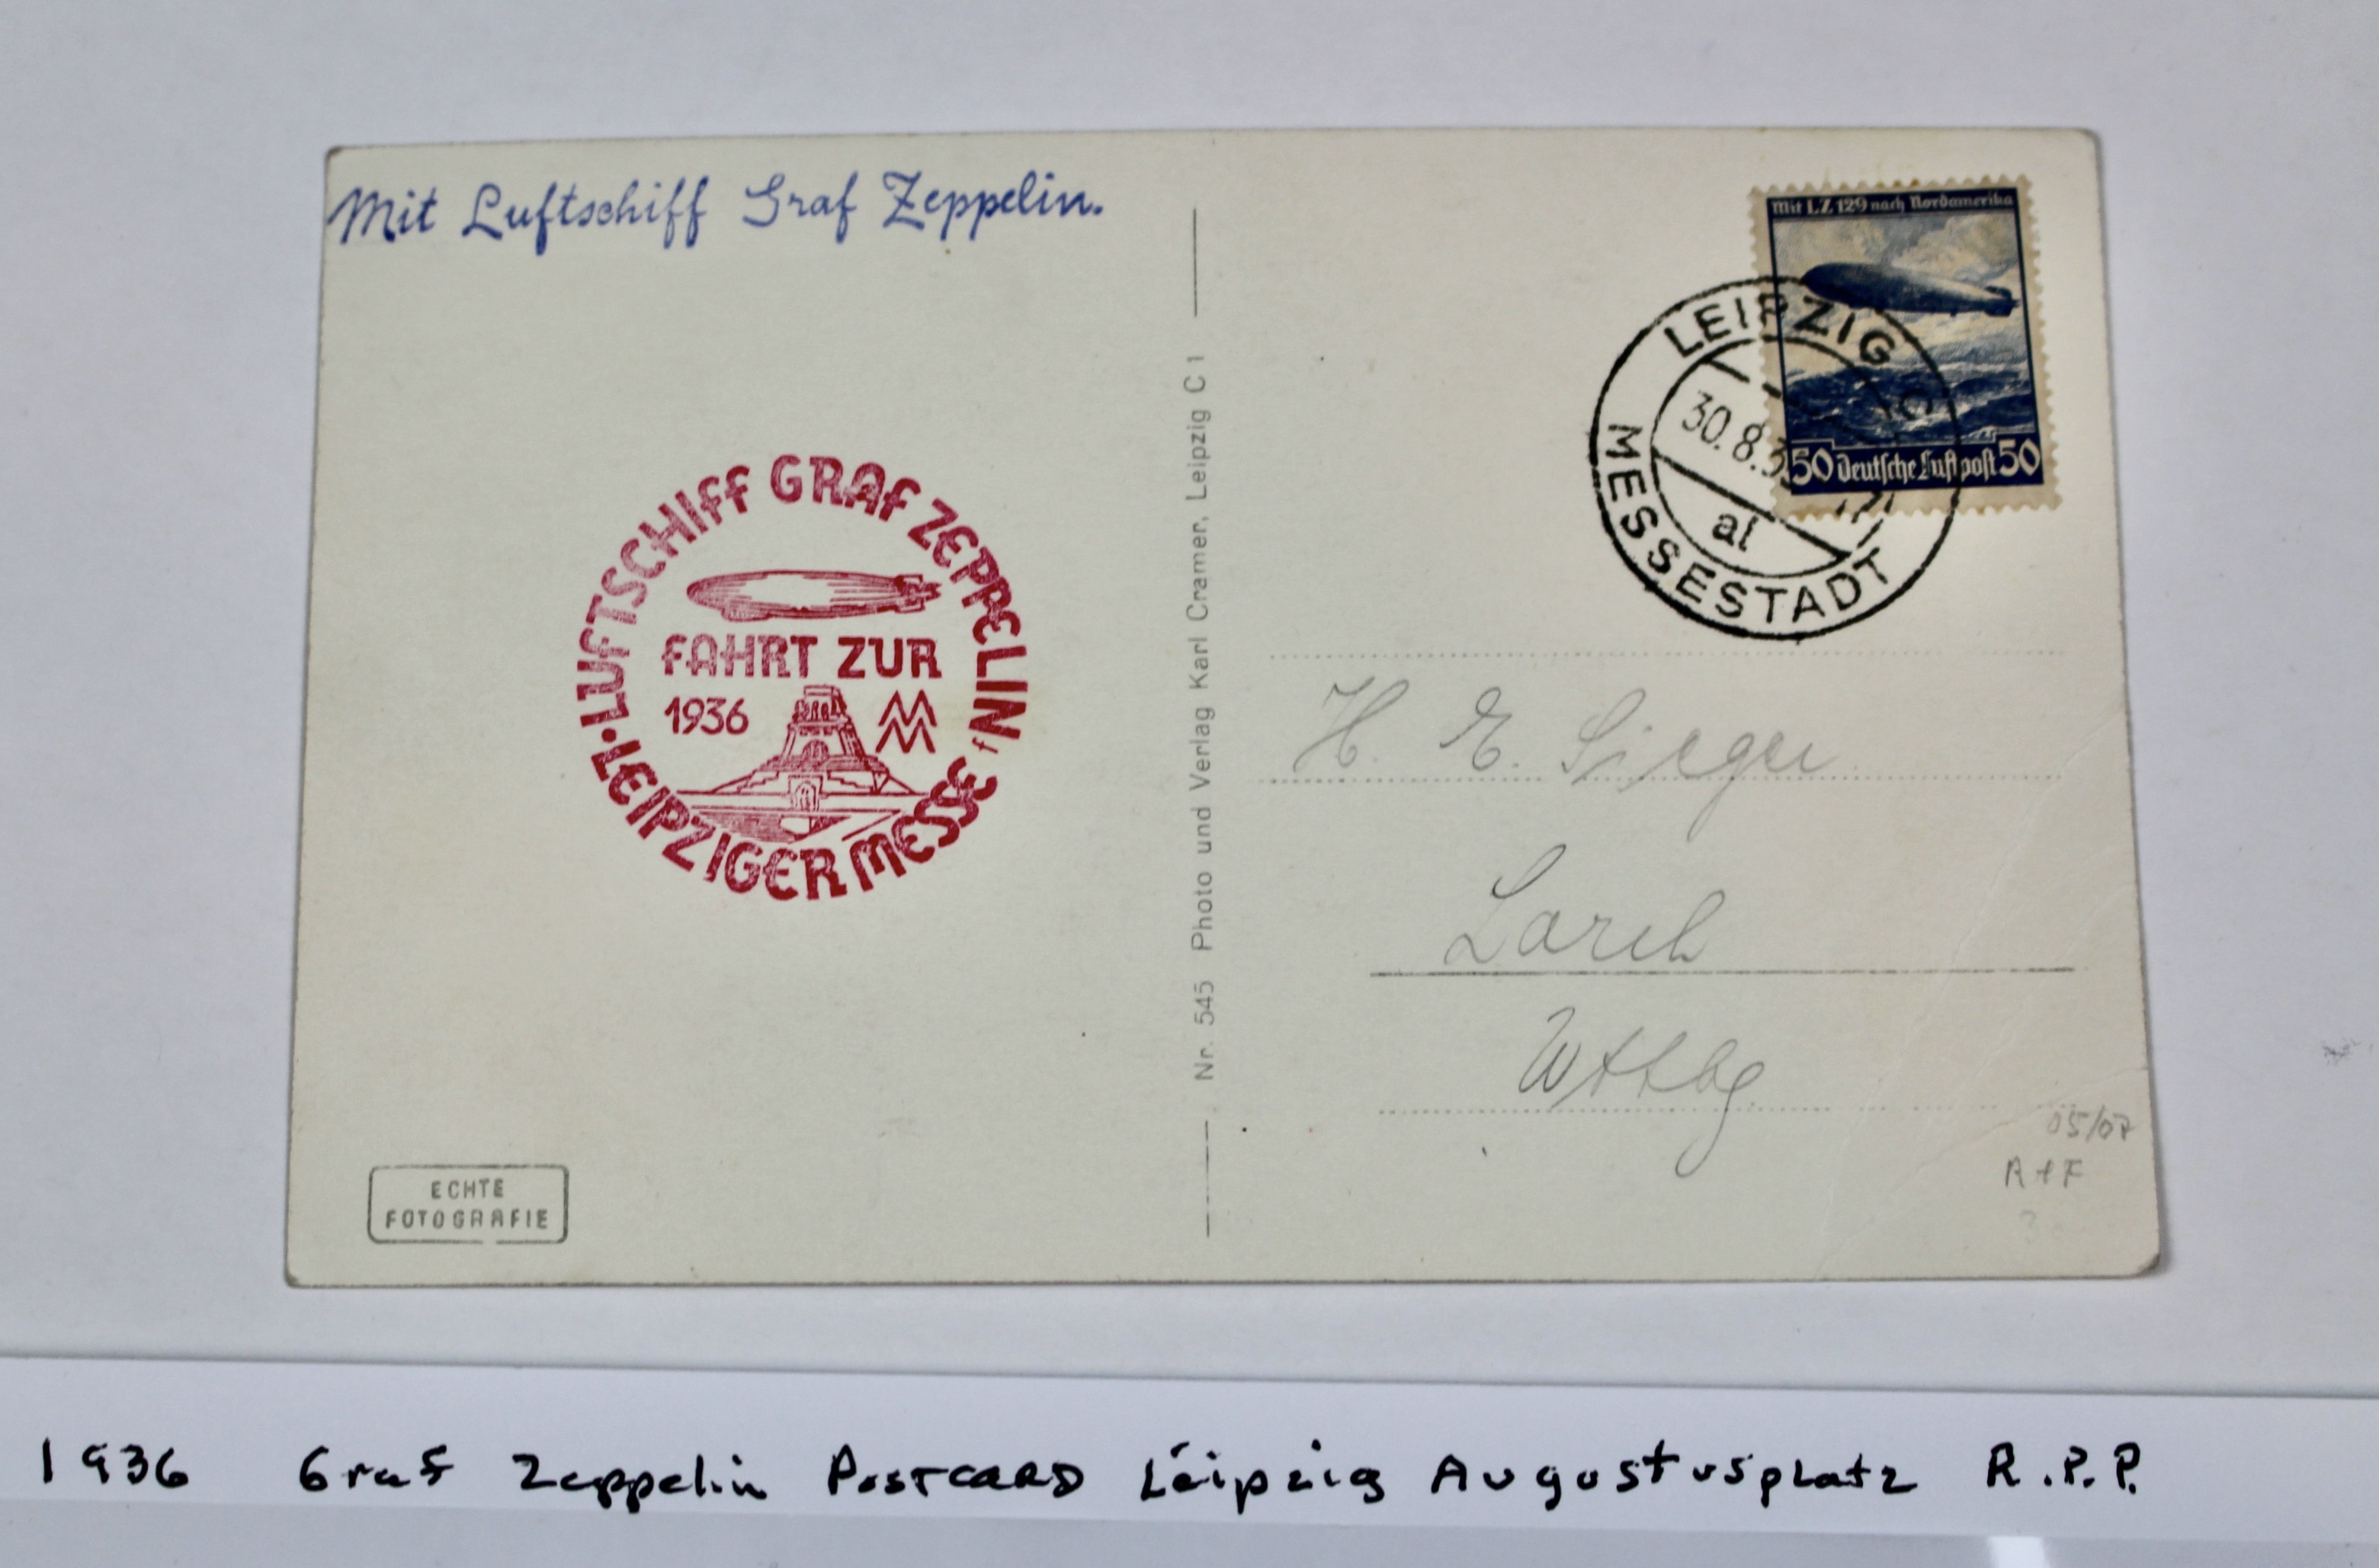 Mit Luftschiff Graf Zeppelin.
LUFTSCHIFF GRAF ZEPPELIN
FAHRT ZUR
1936 MM
• LEIPZIGER MESSE
f
ECHTE
FOTOGRAFIE
Nr. 545 Photo und Verlag Karl Cramer, Leipzig C 1
Mit LZ 129 nach Nordamerika
50 Deutsche Luftpost 50
LEIPZIG C
30.8.3
al
MESSESTADT
H. E. Sieger
Lorch
Wttbg
05/07
R+F
1936 Graf Zeppelin Postcard Leipzig Augustusplatz R.P.P.